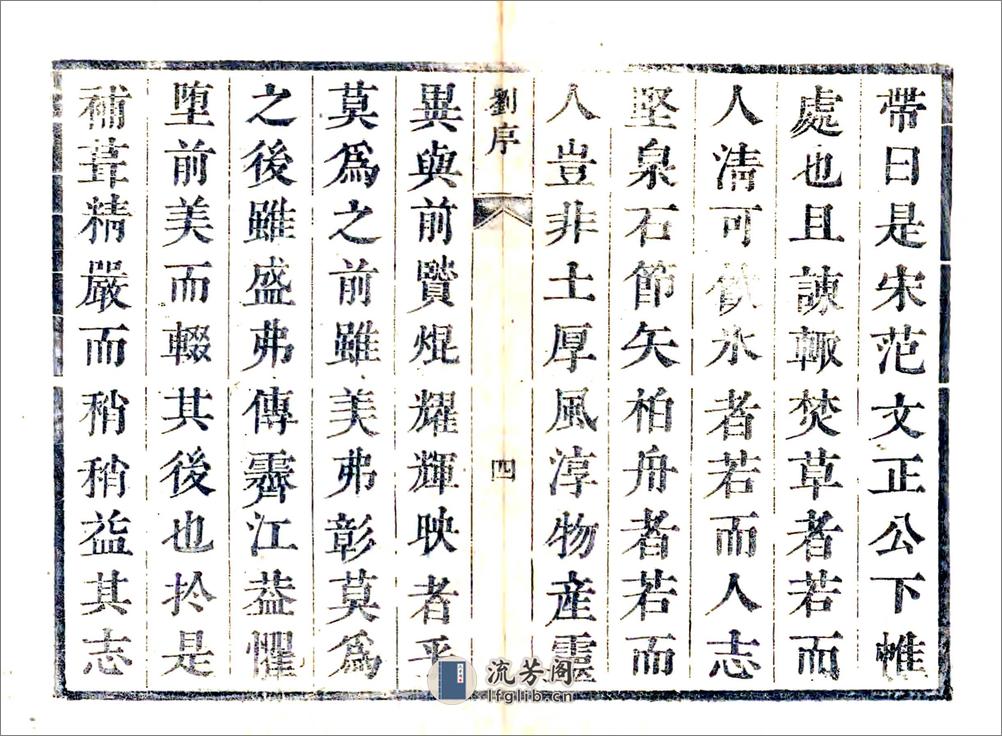 帶曰是宋范文正公下帷
處也且諫輙焚草者若而
人清可飲氷者若而人志
堅泉石節矢柏舟者若而
人豈非土厚風淳物產靈
劉序
四
異與前賢焜耀輝映者乎
莫爲之前雖美弗彰莫爲
之後雖盛弗傳霽江葢懼
堕前美而輟其後也扵是
補葺精嚴而稍稍益其志
流芳阁
lfglib.cn